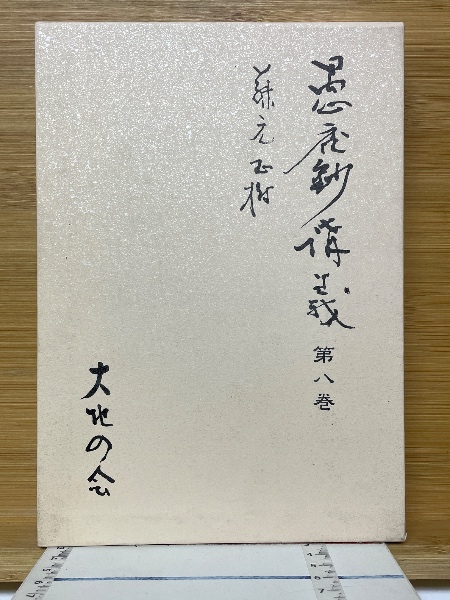 愚禿鈔講義
第八巻
藤元正樹
大地の会